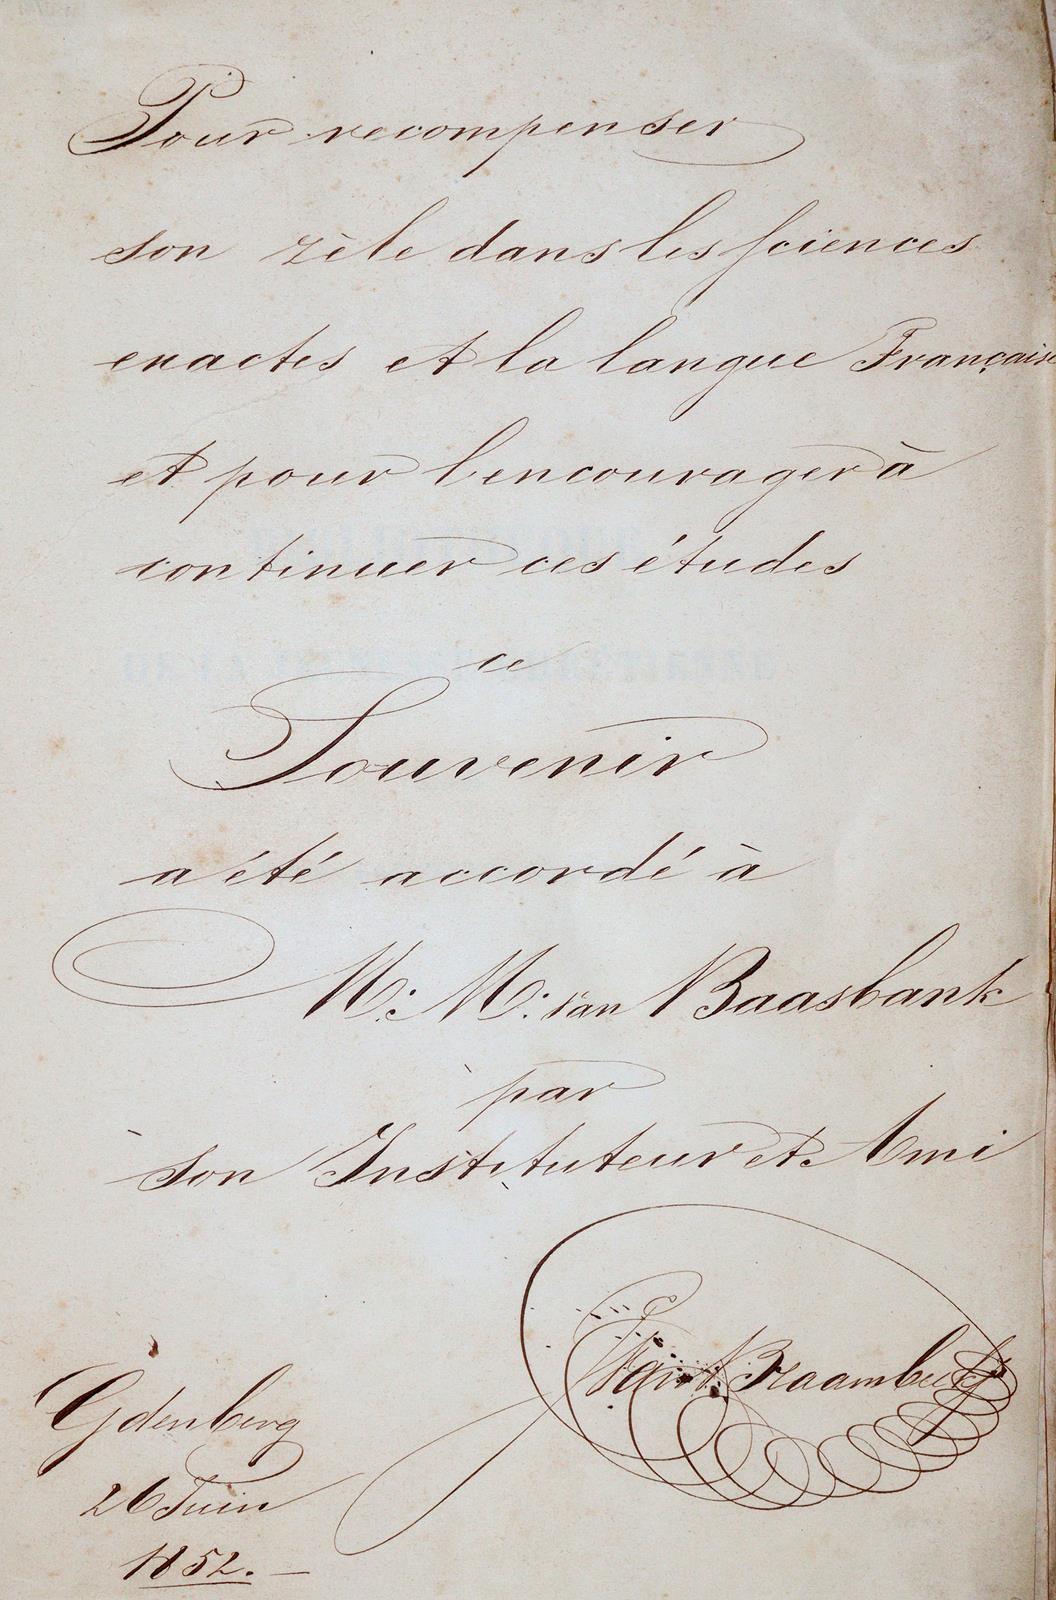 Pour recompenser
son zèle dans les sciences
exactes et la langue Français
et pour l'encourager à
continuer ces études
ce
Souvenir
a été accordé à
M: M: van Baasbank
par
son Instituteur et Ami
van Braambeek
Ydenberg
26 Juin
1852.—